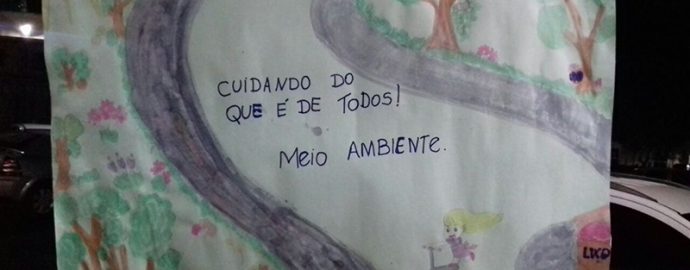 CUIDANDO DO
QUE É DE TODOS!
MEIO AMBIENTE.
LIXO